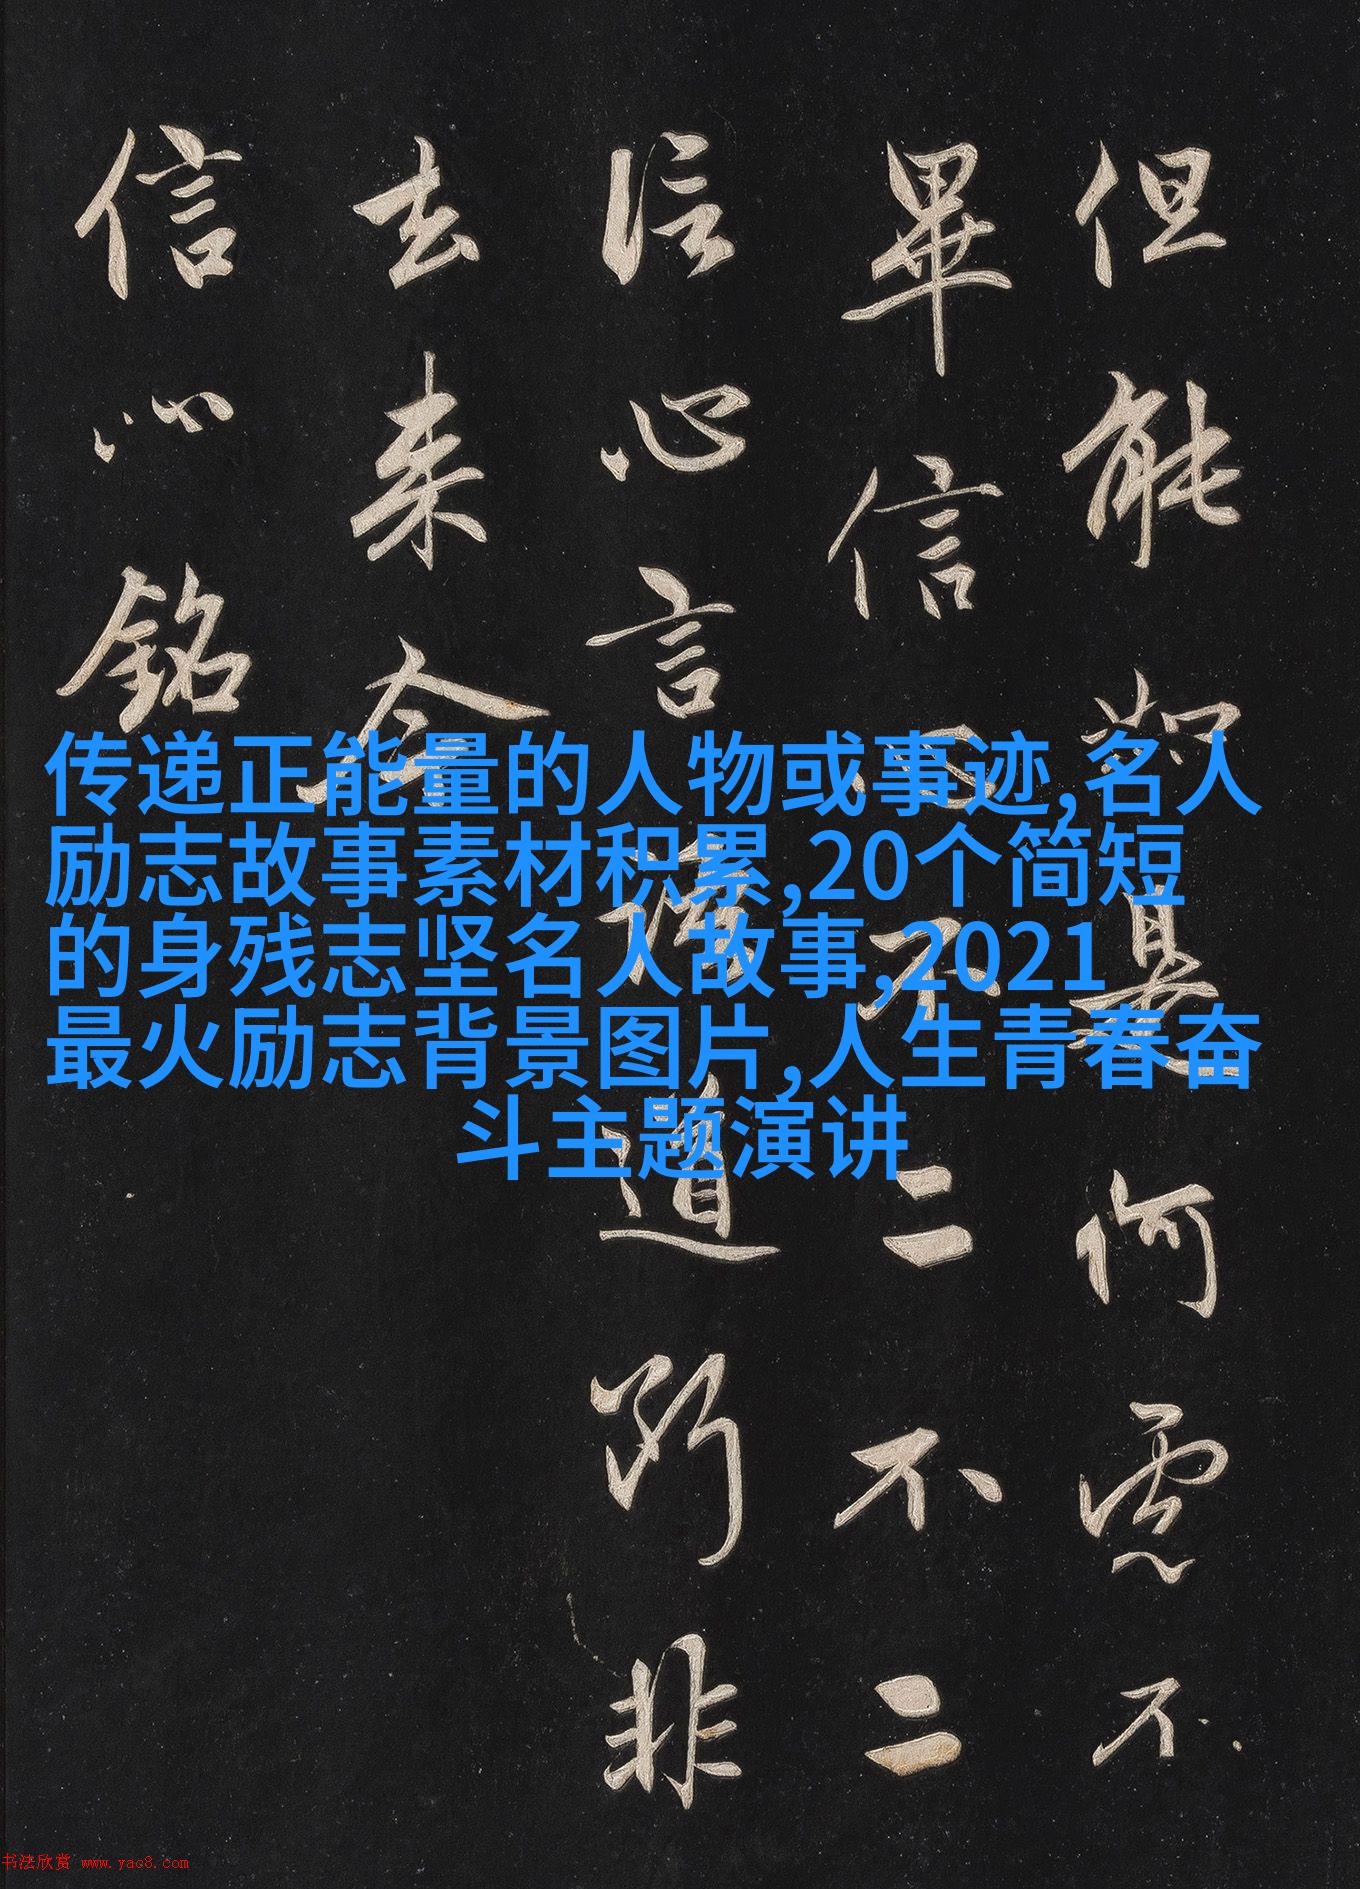 但能如是何慮不
畢信心不二不二
信心言語道斷非
去来今
信心銘
传递正能量的人物或事迹,名人
励志故事素材积累,20个简短
的身残志坚名人故事,2021
最火励志背景图片,人生青春奋
斗主题演讲
书法欣赏 www.yac8.com